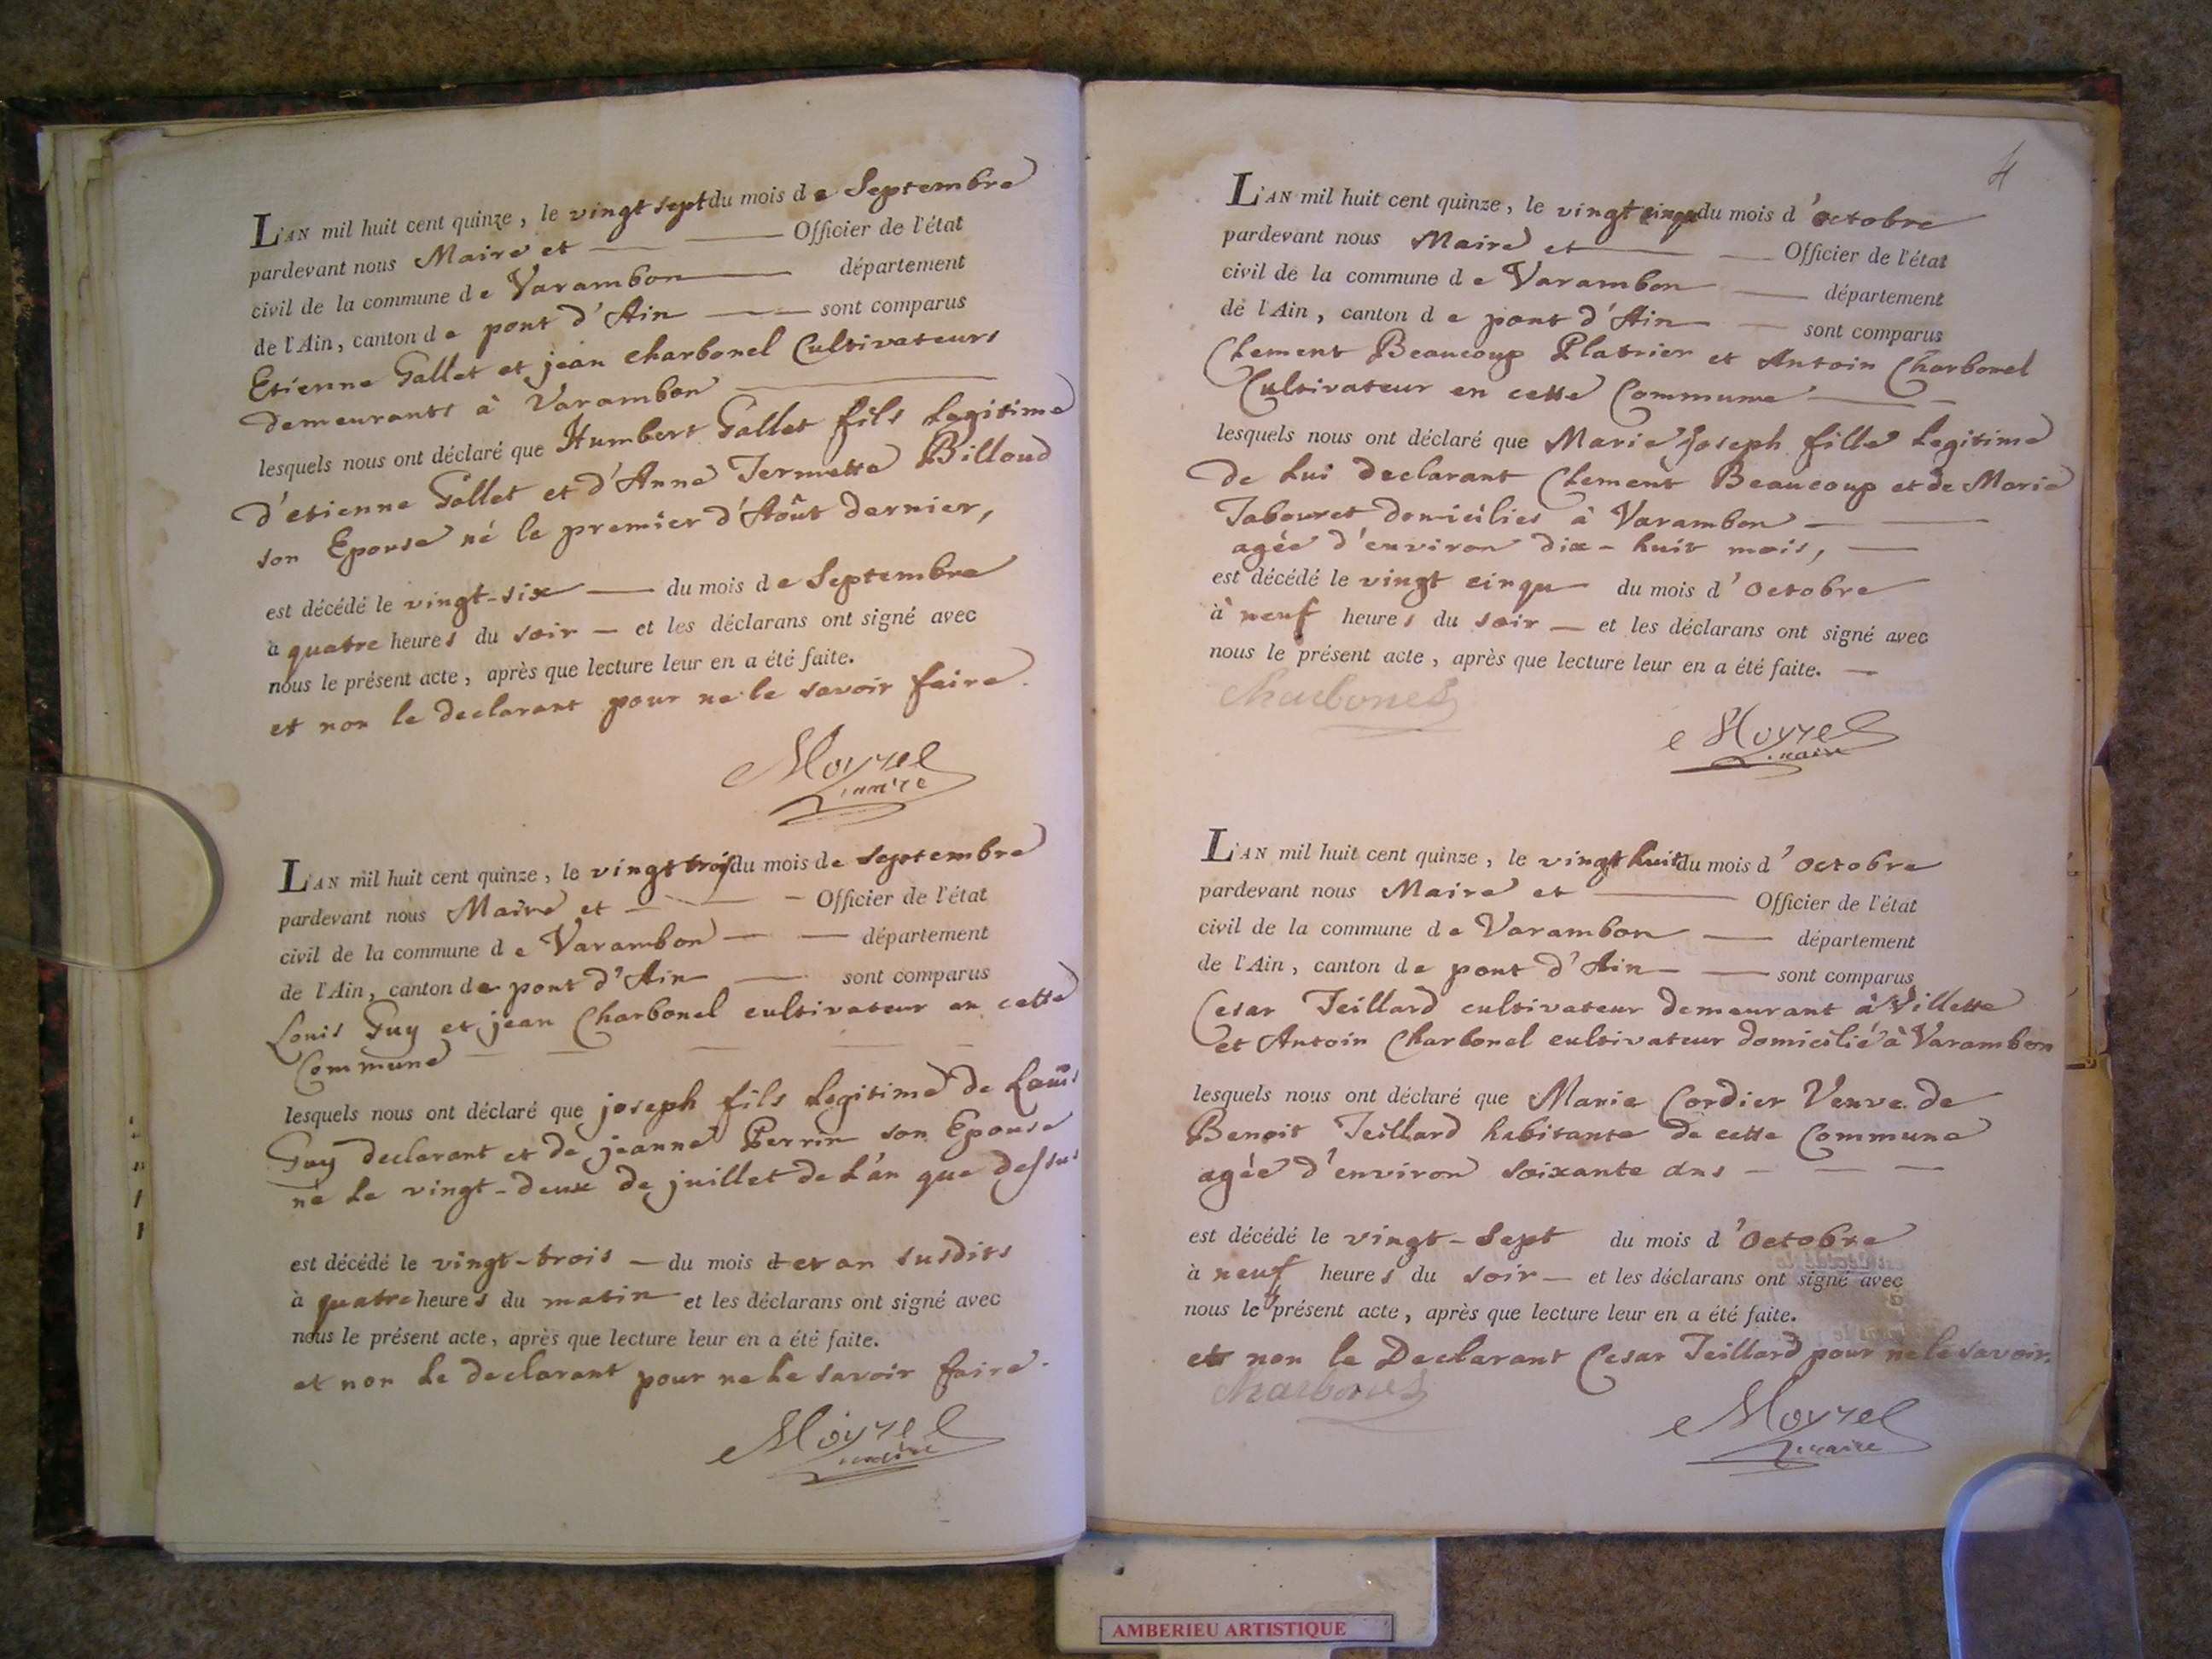 L'AN mil huit cent quinze, le vingt sept du mois de Septembre
pardevant nous Maire et — — Officier de l'état
civil de la commune de Varambon — département
de l'Ain, canton de pont d'Ain — — sont comparus
Etienne Gallet et jean charbonel Cultivateurs
demeurants à Varambon —
lesquels nous ont déclaré que Humbert Gallet fils Legitime
d'etienne Gallet et d'Anne Jermette Billoud
son Epouse né le premier d'Août dernier,
est décédé le vingt-six — du mois de Septembre
à quatre heures du soir — et les déclarans ont signé avec
nous le présent acte, après que lecture leur en a été faite.
et non le declarant pour ne le savoir faire.
Moyrel
maire
L'AN mil huit cent quinze, le vingt trois du mois de Septembre
pardevant nous Maire et — — - Officier de l'état
civil de la commune de Varambon — — département
de l'Ain, canton de pont d'Ain — sont comparus
Louis Guy et jean Charbonel cultivateur en cette
Commune — — — — —
lesquels nous ont déclaré que joseph fils Legitime de Louis
Guy declarant et de jeanne Perrin son Epouse
né Le vingt-deux de juillet de L'an que dessus
est décédé le vingt-trois — du mois et an susdits
à quatre heures du matin et les déclarans ont signé avec
nous le présent acte, après que lecture leur en a été faite.
et non Le declarant pour ne Le savoir faire.
Moyrel
maire
4
L'AN mil huit cent quinze, le vingt cinqu du mois d'octobre
pardevant nous Maire et — — Officier de l'état
civil de la commune de Varambon — département
de l'Ain, canton de pont d'Ain — sont comparus
Clement Beaucoup Platrier et Antoin Charbonel
Cultivateur en cette Commune — -
lesquels nous ont déclaré que Marie Joseph fille Legitime
de Lui declarant Clement Beaucoup et de Marie
Tabouret domiciliés à Varambon — —
agée d'environ dix-huit mois, —
est décédé le vingt cinqu du mois d'Octobre
à neuf heures du soir — et les déclarans ont signé avec
nous le présent acte, après que lecture leur en a été faite. —
Charbonel
Moyrel
maire
L'AN mil huit cent quinze, le vingt huit du mois d'Octobre
pardevant nous Maire et — Officier de l'état
civil de la commune de Varambon — département
de l'Ain, canton de pont d'Ain — — sont comparus
Cesar Teillard cultivateur demeurant à Villette
et Antoin Charbonel cultivateur domicilié à Varambon
lesquels nous ont déclaré que Marie Cordier Veuve de
Benoit Teillard habitante de cette Commune
agée d'environ soixante ans — — —
est décédé le vingt-Sept du mois d'Octobre
à neuf heures du soir — et les déclarans ont signé avec
nous le présent acte, après que lecture leur en a été faite.
et non le Declarant Cesar Teillard pour ne le savoir.
Charbonel
Moyrel
maire
AMBERIEU ARTISTIQUE